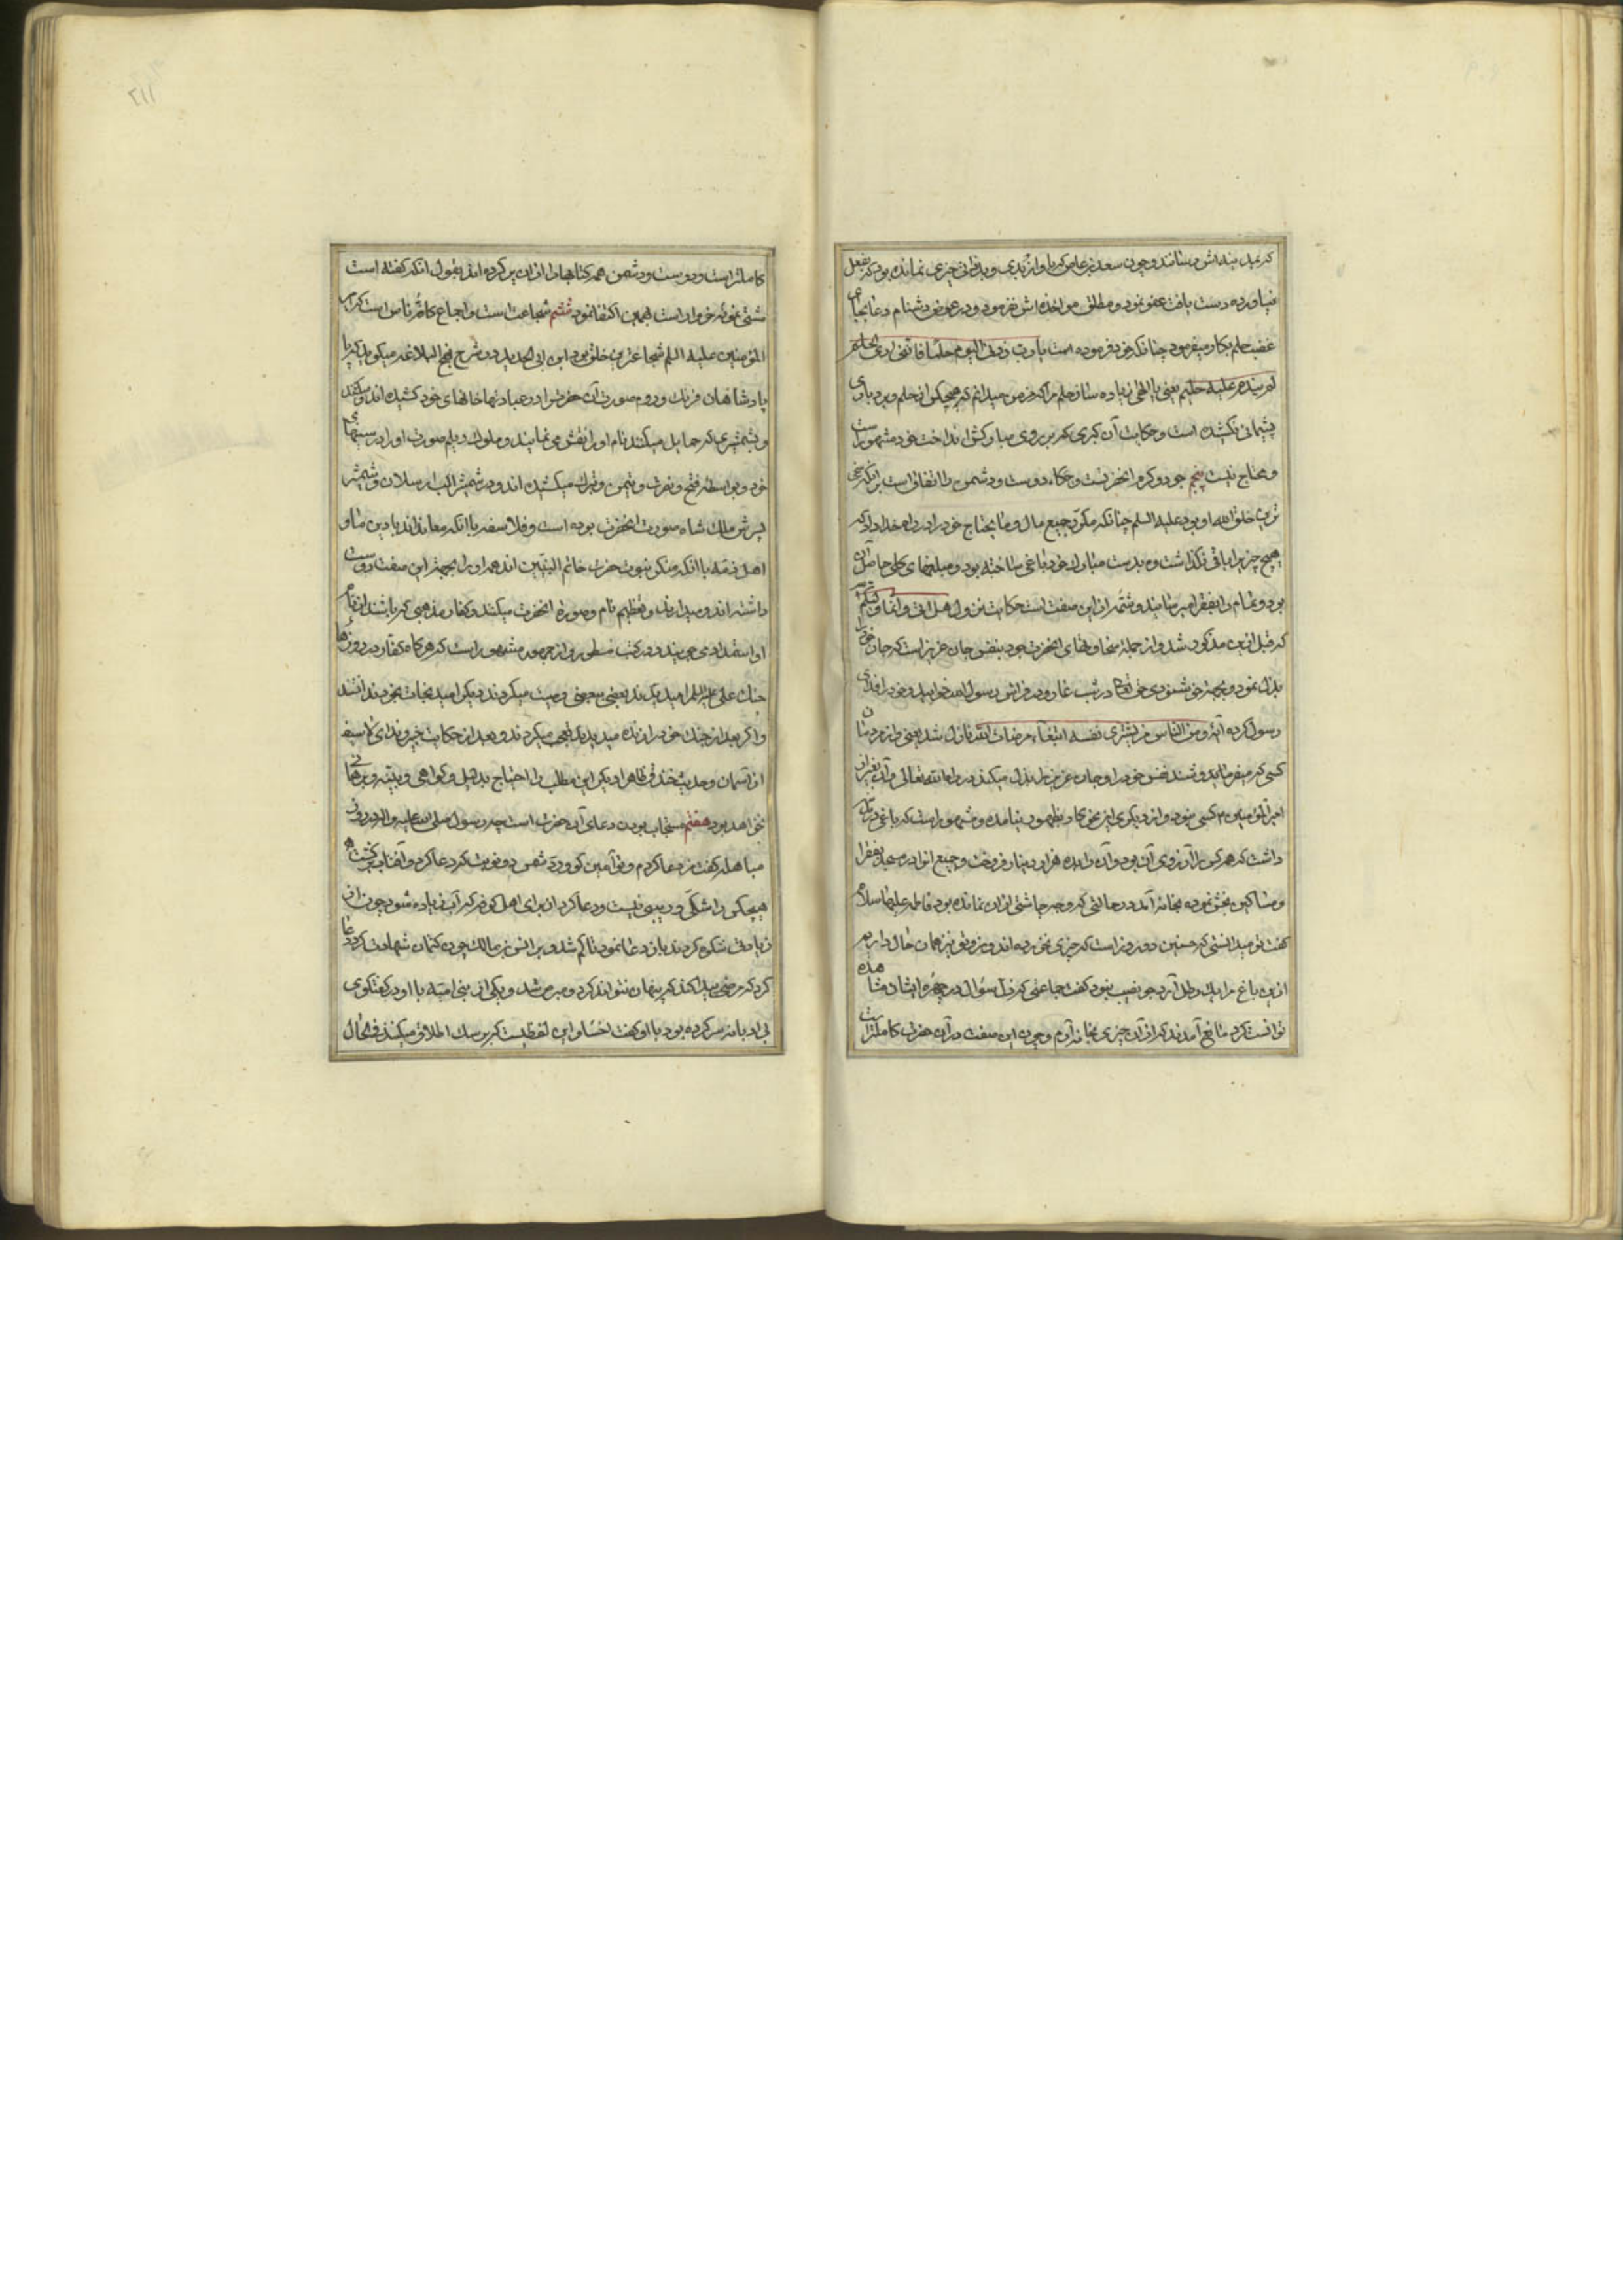 که بمید بنداش رسانند و چون سعد بن عاص که با او از بدی و بدذاتی چیزی نمانده بود که بفعل
نیاورده دست یافت عفو نمود و مطلق مواخذه اش نفرمود و در عوض دشنام دعا بجای
غضب حلم بکار میفرمود چنانکه خود فرموده است یا رب زدنی الیوم حلما فاننی اری الحلم
لم یندم علیه حلیم یعنی یا الهی زیاده ساز حلم مرا که من میدانم که هیچکس از حلم و بردباری
پشیمانی نکشیده است و حکایت آن کبری که بر روی مبارکش انداخت خود مشهور است
و محتاج نیست پنجم جود و کرم انحضرتست و حکاء دوست و دشمن را اتفاق است بر آنکه سخی
ترین خلق الله او بود علیه السلم چنانکه مکرر جمیع مال و ما یحتاج خود را در راه خدا داد که
هیچ چیز برا باقی نگذاشت و بدست مبارک خود باغی ساخته بود و مبلغهای کلی حاصل آن
بود و تمام را بفقرا میرسانید و شمه از این صفت است حکایت نزول هل اتی و انما ولیکم
که قبل ازین مذکور شد و از جملهٔ سخاوتهای انحضرت جود بنفس جان عزیز است که جان خود را
بذل نمود و بجهة خوشنودی حق تعالی در شب غار و در فراش رسول الله خوابید و خود را فدای
رسول کرده آیه و من الناس من یشری نفسه ابتغاء مرضات الله نازل شد یعنی و از مردمان
کسی که میفرماید و شند نفس خود را و جان عزیز را بذل میکند در راه الله تعالی و آن بغیر از
امیر المؤمنین ع کسی نبود و از دیگری این نحو کار بظهور نیامده و مشهور است که باغی در
داشت که هر کس را آرزوی آن بود و آن را بده هزار دینار فروخت و جمیع انرا در مسجد بفقرا
و مساکین بخش نموده بخانه آمد در حالتی که وجه چاشتی از آن نمانده بود فاطمه علیها سلام
گفت تو میدانستی که حسنین دو روز است که چیزی نخورده اند و من و تو نیز همان حال داریم
ازین باغ مرا یک رطل آرد جو نصیب نبود گفت جماعتی که ذل سؤال در چهره ایشان مشاهده
توانست کرد مانع آمدند که از آن چیزی بخانه آرم و چون این صفت در آن حضرت کاملتر است
کاملتر است و دوست و دشمن همه کتابها را از آن پر کرده اند بقول آنکه گفته است
مشتی نمونه خروار است بهمین اکتفا نمود ششم شجاعت است و اجماع کافهٔ ناس است که امیر
المؤمنین علیه السلم شجاعترین خلق بود ابن ابی الحدید در شرح نهج البلاغه میگوید که
پادشاهان فرنک و روم صورت آن حضرت را در عبادتها خانهای خود کشیده اند و میکشند
و بشمشیری که حمایل میکنند نام او را نقش می نمایند و ملوک دیلم صورت او را در سینهای
خود و بواسطه فتح و نصرت و تیمن و تبرک میکشیده اند و در شمشیر الب ارسلان و شمشیر
پسرش ملک شاه صورت انحضرت بوده است و فلاسفه با آنکه معاندند با دین ما و
اهل ذمه با آنکه منکر نبوت حضرت خاتم النبیین اند همه او را بجهة این صفت دوست
داشته اند و میدارند و تعظیم نام و صورة انحضرت میکنند و کفار مذهبی که باشند از نام
او استمداد می جویند و در کتب مسطور و از جمهور مشهور است که هرگاه کفار در روزهای
جنک علی علیه السلم را میدیدند بعضی ببعضی وصیت میکردند دیگر امید نجات بخود نداشتند
و اگر بعد از جنک خود را زنده میدیدند تعجب میکردند و بعد از حکایت خیبر و ندای لا سیف
از آسمان و حدیث خندق ظاهرا دیگر این مطلب را احتیاج بدلیل و گواهی و بینه و برهانی
نخواهد بود هفتم مستجاب بودن دعای آن حضرت است چه رسول صلی الله علیه و اله در روز
مباهله گفت من دعا کردم و تو آمین گو و رد شمس دو نوبت کرد دعا کرد و آفتاب برگشت
هیچکس را شکی و ریبی نیست و دعا کرد از برای اهل کوفه که آب زیاده شود چون از
زیادتی شکوه کردند باز دعا نمود تا کم شد و بر انس بن مالک چون کتمان شهادت کرد دعا
کرد که مرضی پیدا کند که پنهان نتواند کرد و مبروص شد و یکی از بنی امیه با او در گفتگوی
بی ادبانه سر کرده بود با او گفت اخسا و این لفظیست که بر سک اطلاق میکنند فی الحال